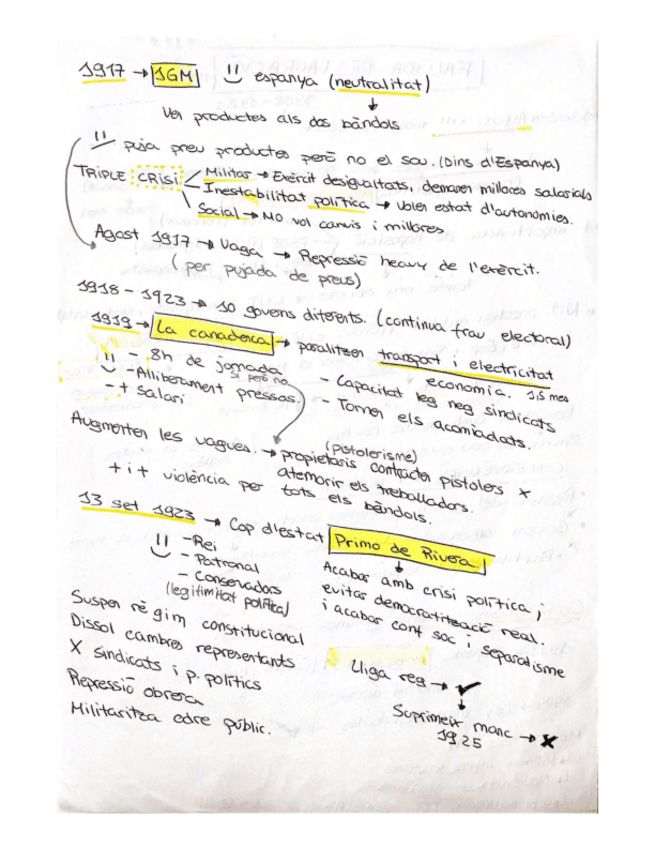 1917 → 1GM espanya (neutralitat)
Ven productes als dos bàndols
puja preu productes però no el sou. (Dins d'Espanya)
TRIPLE CRISI
Militar → Exèrcit desigualtats, demanen millores salarials
Inestabilitat política → volen estat d'autonomies.
Social → NO vol canvis i millores
Agost 1917 → Vaga → Repressió heavy de l'exèrcit.
(per pujada de preus)
1918 - 1923 → 10 governs diferents. (continua frau electoral)
1919 → La canadenca → paralitzen transport i electricitat
economia. 1,5 mes
- 8h de jornada
si però no
- Alliberament pressos.
- + salari
- Capacitat leg neg sindicats
- Tornen els acomiadats.
Augmenten les vagues. → propietaris contracten pistolers x
(pistolerisme)
atemorir els treballadors.
+ i + violència per tots els bàndols.
13 set 1923 → Cop d'estat Primo de Rivera
- Rei
- Patronal
- Conservadors
(legitimitat política)
Acabar amb crisi política,
evitar democratització real.
i acabar conf soc i separatisme
Suspen règim constitucional
Dissol cambres representants
X sindicats i p. polítics
Repressió obrera
Militaritza odre públic.
Lliga reg → ✓
Suprimeix manc → x
1925